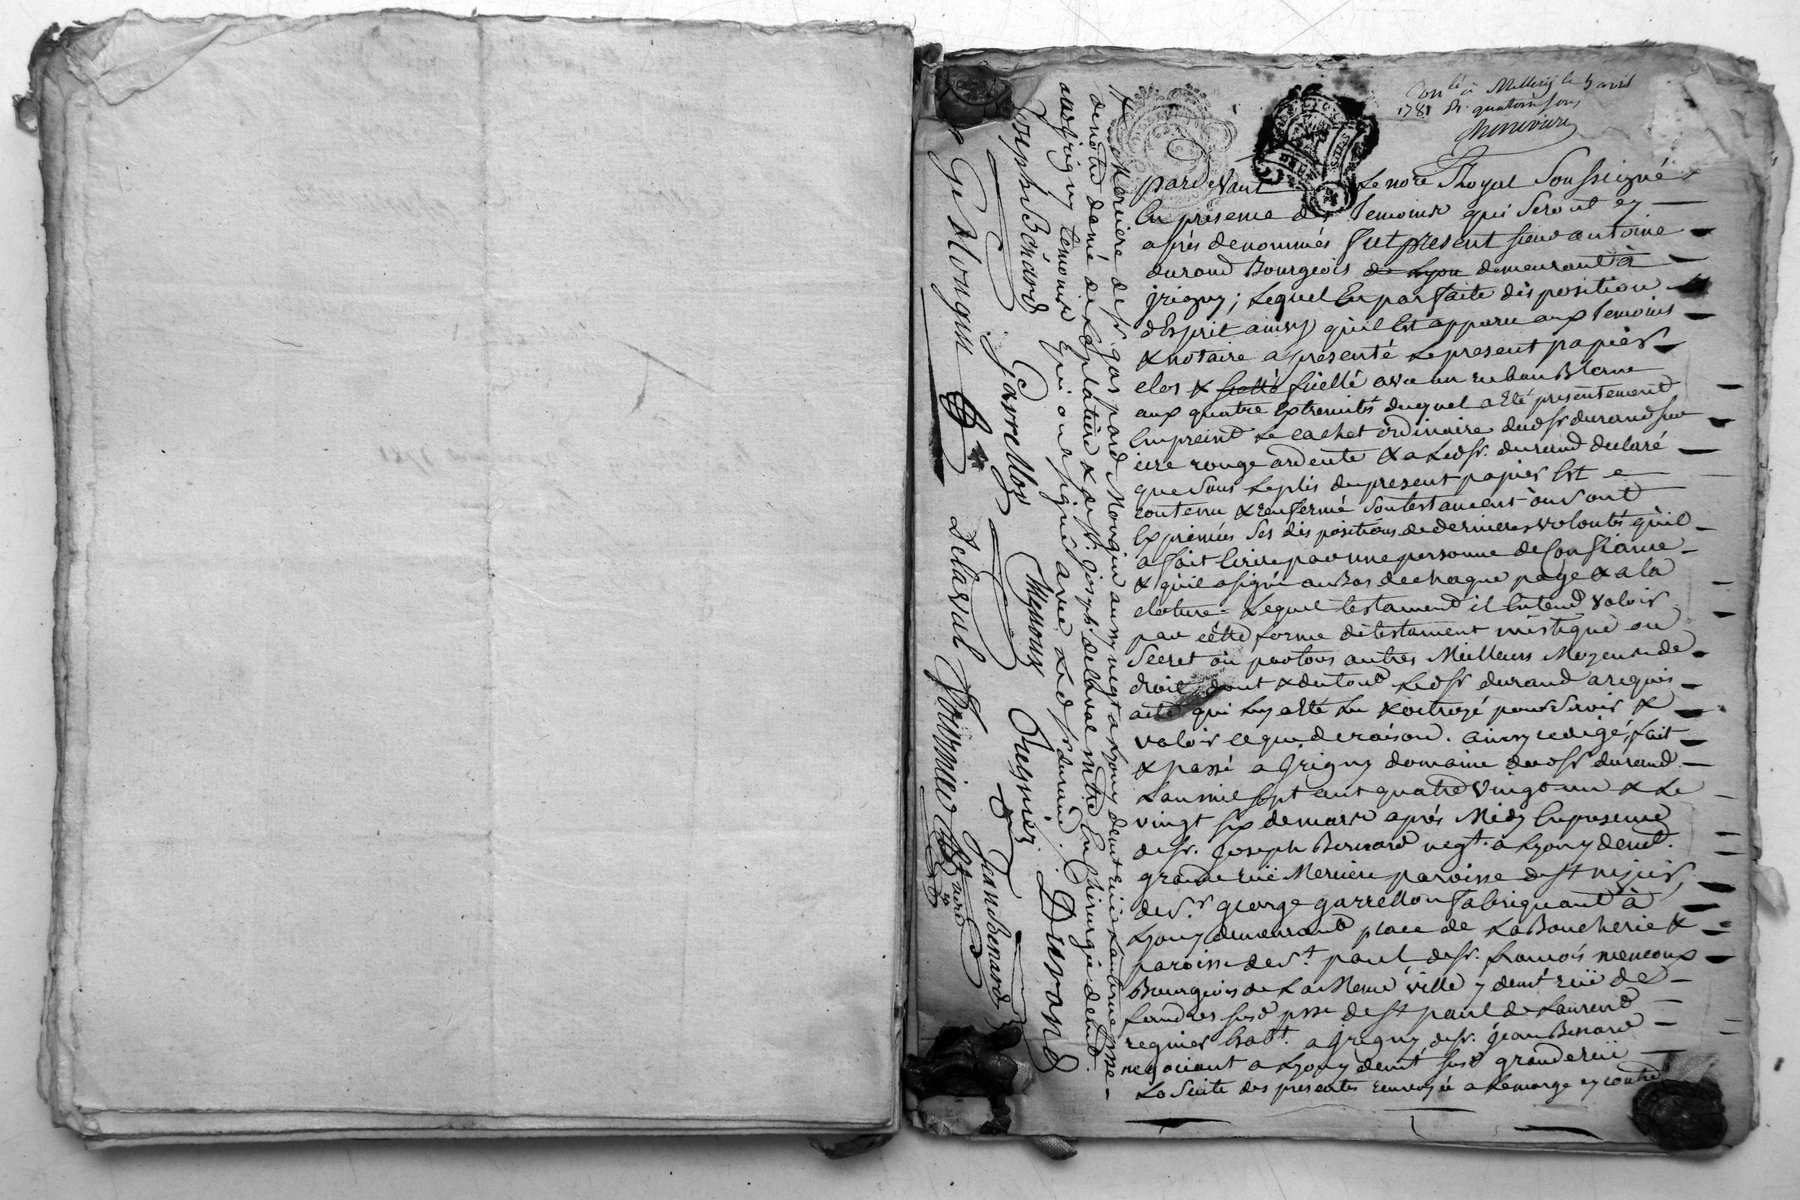 Conlé à Millery le 5 avril
1781 R. quatorze sous
Chenevière
Pardevant Le nore Royal Soussigné
En presence des Temoins qui Seront cy
après denommés fut present sieur antoine
durand Bourgeois de Lyon demeurant à
jrigny; Lequel En parfaite disposition
d'Esprit ainsy qu'il Est apparu aux Temoins
& notaire a presenté Le present papier
clos & ficellé avec un ruban Blanc
aux quatre Extremités duquel a Eté presentement
Empreint Le cachet ordinaire dudsr durand sur
cire rouge ardente & a Ledsr. durand declaré
que Sous Le plis du present papier Est
contenu & renfermé Son testament ou Sont
Exprimées Ses dispositions de dernieres volontés qu'il
a fait Ecrire par une personne de Confiance
& qu'il a signé au Bas de chaque page & a la
cloture = Lequel testament il Entend valoir
par cette forme de testament mistique ou
Secret ou par tous autres Meilleurs Moyens de
droit, dont & du tout Ledsr durand a requis
acte qui Luy a Eté Lu & octroyé pour Servir &
valoir ce que de raison. ainsy redigé, fait
& passé a jrigny domaine dudsr durand
L'an mil sept cent quatre vingt un & Le
vingt six de mars après Midy En presence
de sr. joseph Bernard negt. a Lyon y demt.
grande ruë Merciere paroisse de st nizier,
de Sr george garrellon fabriquant à
Lyon y demeurant place de La Boucherie &
paroisse de St. paul de sr. francois menoux
Bourgeois de La Meme ville y demt ruë de
Flandres susd psse de st paul de Laurent
regnier habt. a jrigny de sr. jean Benard
negociant a Lyon y demt susd grande ruë
La Suite des presentes renvoyée a La marge cy contre
Merciere de sr. gaspard Mongin aussy negt a Lyon y demt ruë & susd psse
de notre dame de La platiere & de sr. joseph delaval mtre En chirurgie demt.
aud jrigny temoins qui ont signé avec Led sr durand.
Joseph Bénard Garrellon Menoux Regnier Durand
Jean Benard
G. Mongin Delaval